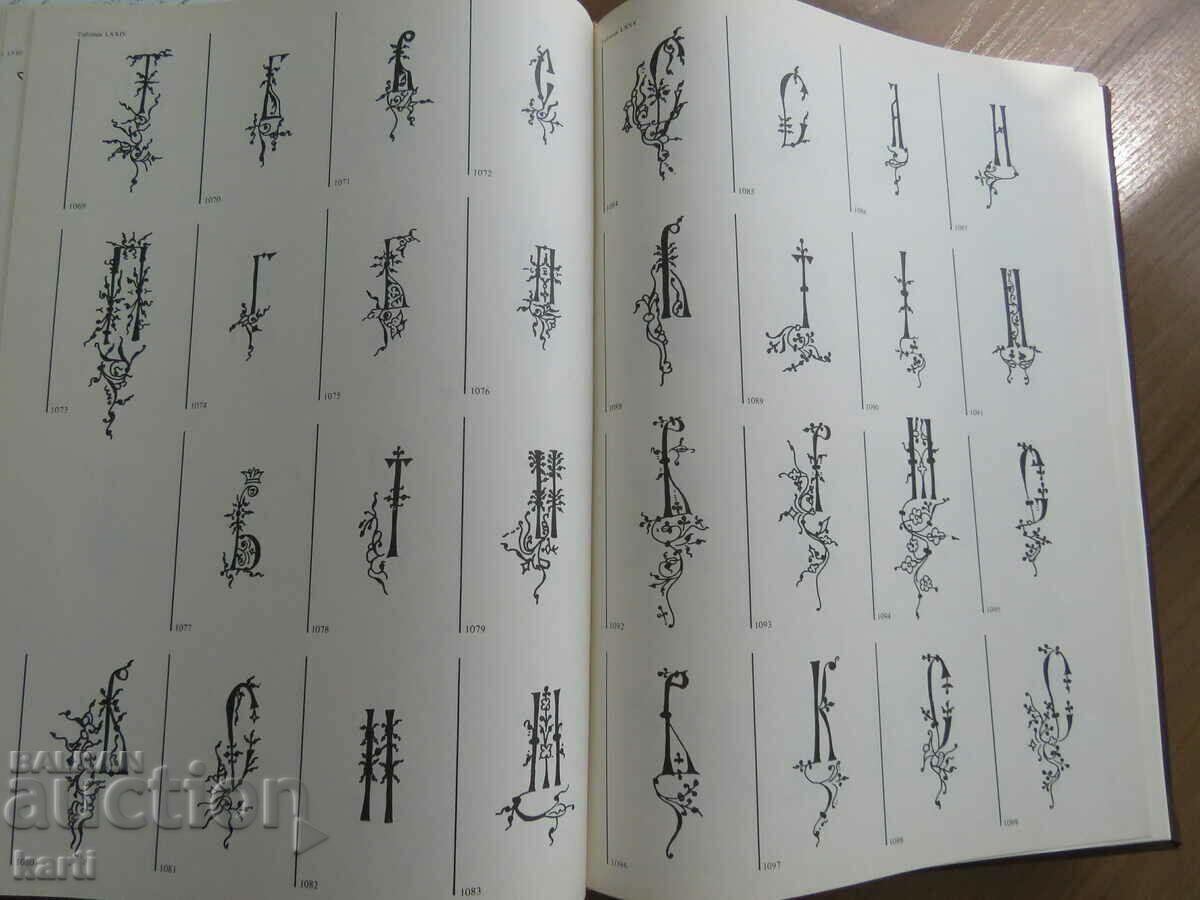 Таблица LXXIX
1069
1070
1071
1072
1073
1074
1075
1076
1077
1078
1079
1080
1081
1082
1083
Таблица LXXX
1084
1085
1086
1087
1088
1089
1090
1091
1092
1093
1094
1095
1096
1097
1098
1099
BALKAN
auction
karti